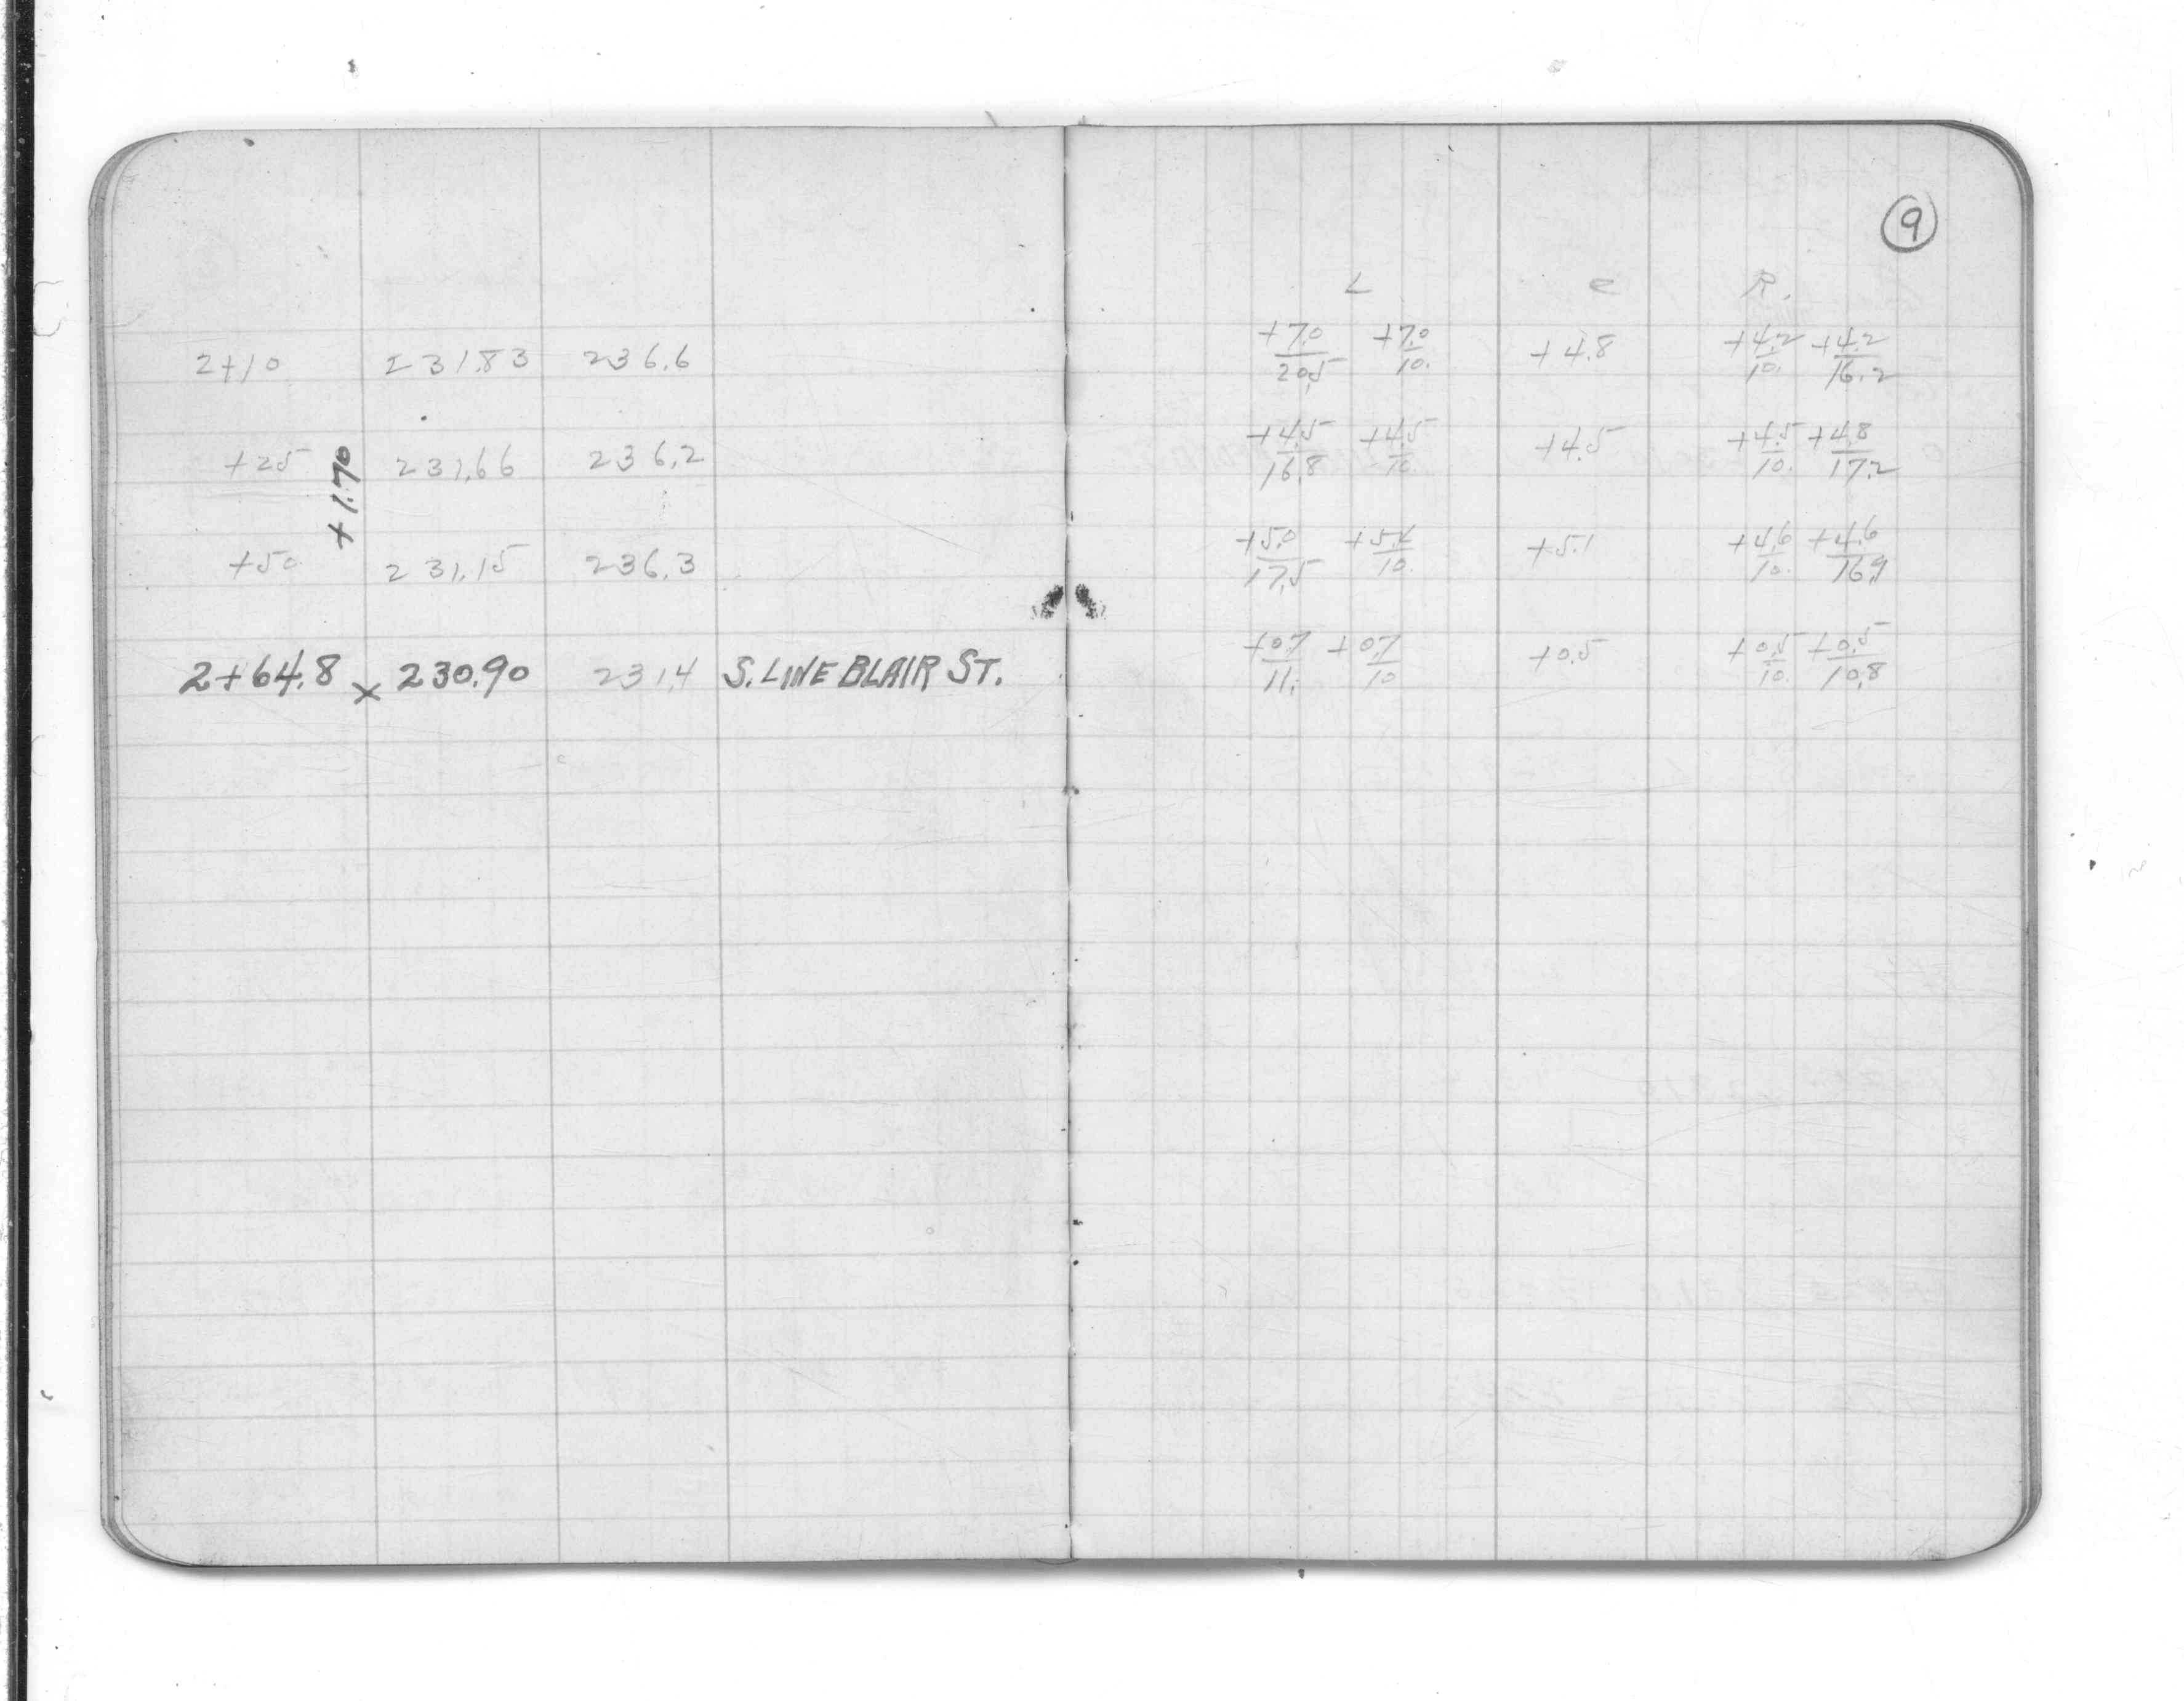 9
L C R.
2+10 231.83 236.6 +7.0/20.5 +7.0/10. +4.8 +4.2/10. +4.2/16.2
+25 231.66 236.2 +4.5/16.8 +4.5/10. +4.5 +4.5/10. +4.8/17.2
+1.70
+50 231.15 236.3 +5.0/17.5 /10. +5.1 +4.6/10. +4.6/16.9
2+64.8 x 230.90 231.4 S. LINE BLAIR ST. +0.7/11. +0.7/10 +0.5 +0.5/10. +0.5/10.8